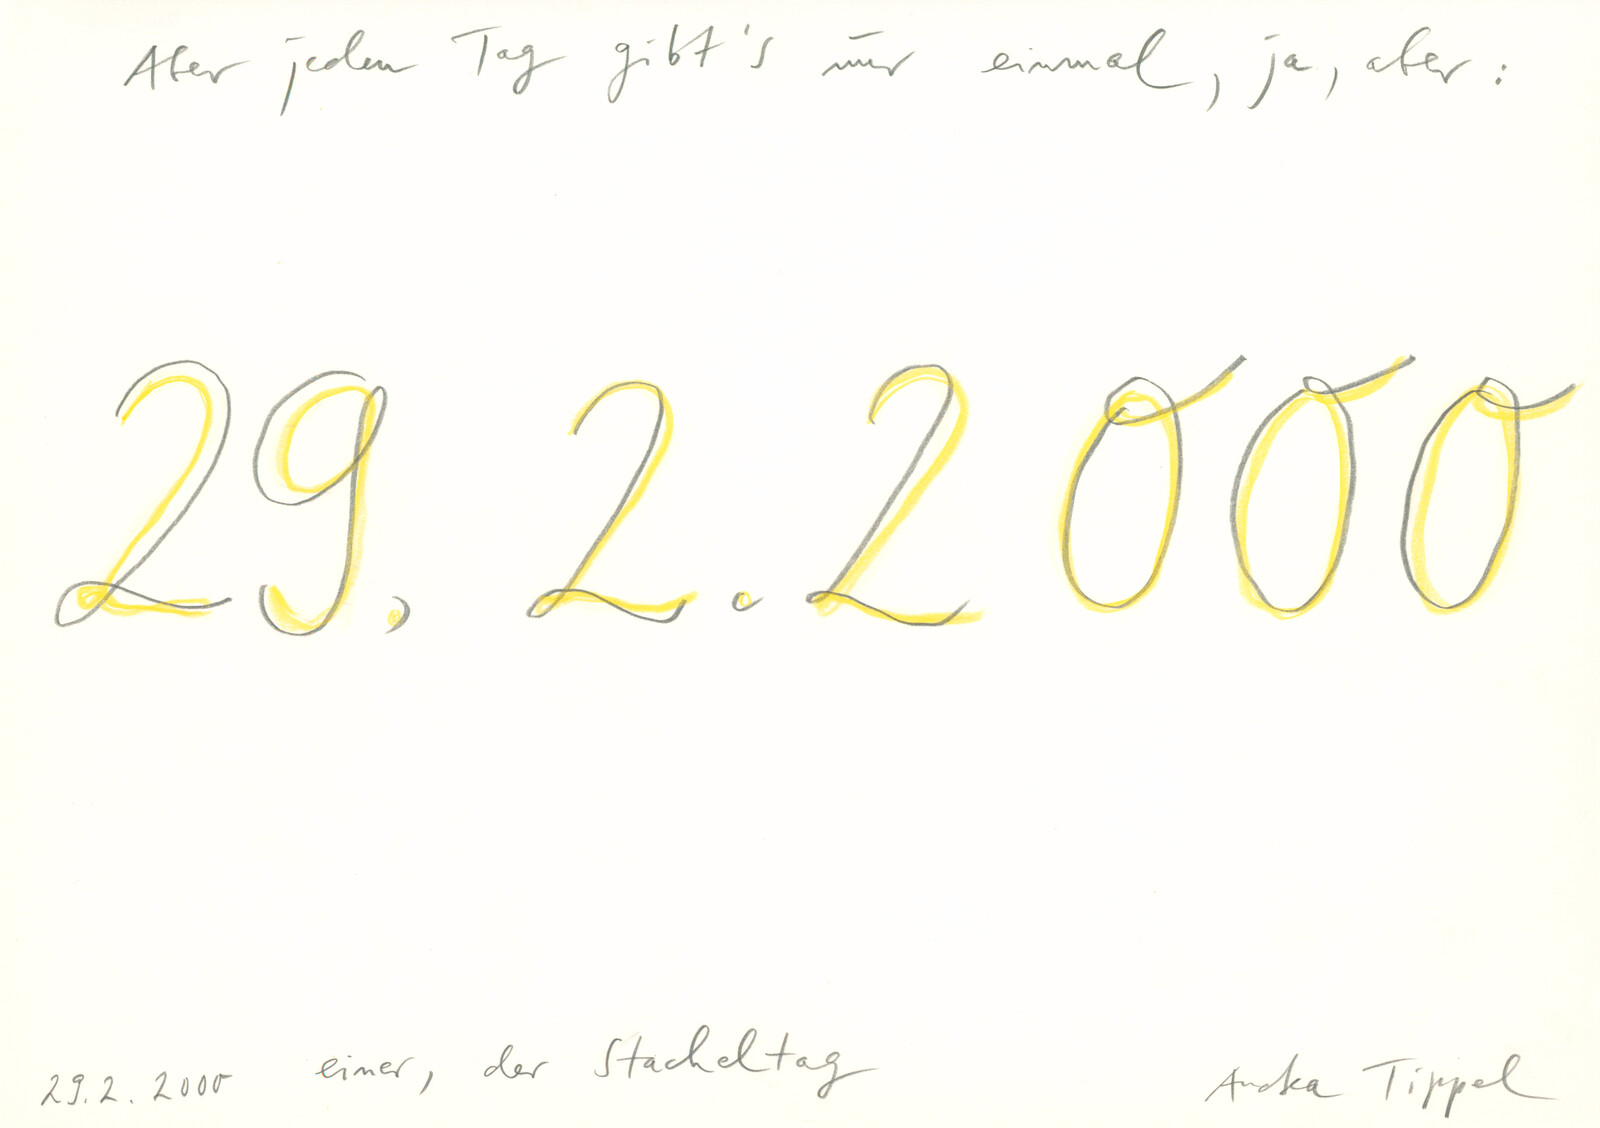 Aber jeden Tag gibt's nur einmal, ja, aber:
29. 2. 2000
29.2.2000 einer, der Stacheltag Andrea Tippel